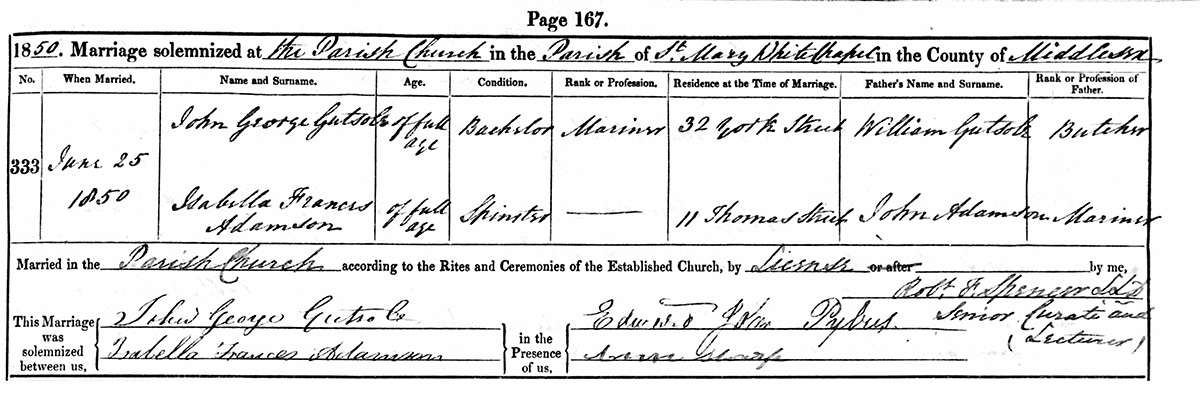 Page 167.
1850. Marriage solemnized at the Parish Church in the Parish of St Mary Whitechapel in the County of Middlesex
No. When Married. Name and Surname. Age. Condition. Rank or Profession. Residence at the Time of Marriage. Father's Name and Surname. Rank or Profession of Father.
333 June 25 1850
John George Gutsole of full age Bachelor Mariner 32 York Street William Gutsole Butcher
Isabella Frances Adamson of full age Spinster 11 Thomas Street John Adamson Mariner
Married in the Parish Church according to the Rites and Ceremonies of the Established Church, by License or after by me,
Robt F. Spencer LLD
Senior Curate and
(Lecturer)
This Marriage was solemnized between us,
John George Gutsole
Isabella Frances Adamson
in the Presence of us,
Edward Pybus